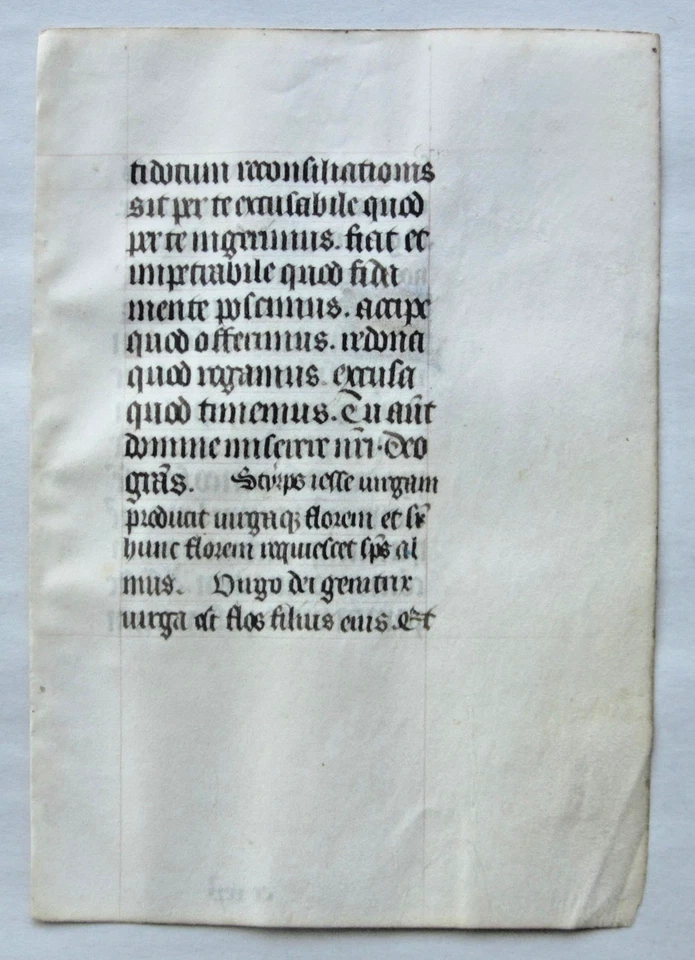 tidotum reconsiliationis
sit per te excusabile quod
per te ingerimus. fiat et
impetrabile quod fida
mente poscimus. accipe
quod offerimus. redona
quod rogamus. excusa
quod timemus. Tu aūt
domine miserere nr̄i. Deo
gr̄as. Styrps iesse uirgam
producit uirgaqꝫ florem et sr̄
hunc florem requiescet sp̄s al
mus. Uirgo dei genitrix
uirga est flos filius eius. Et